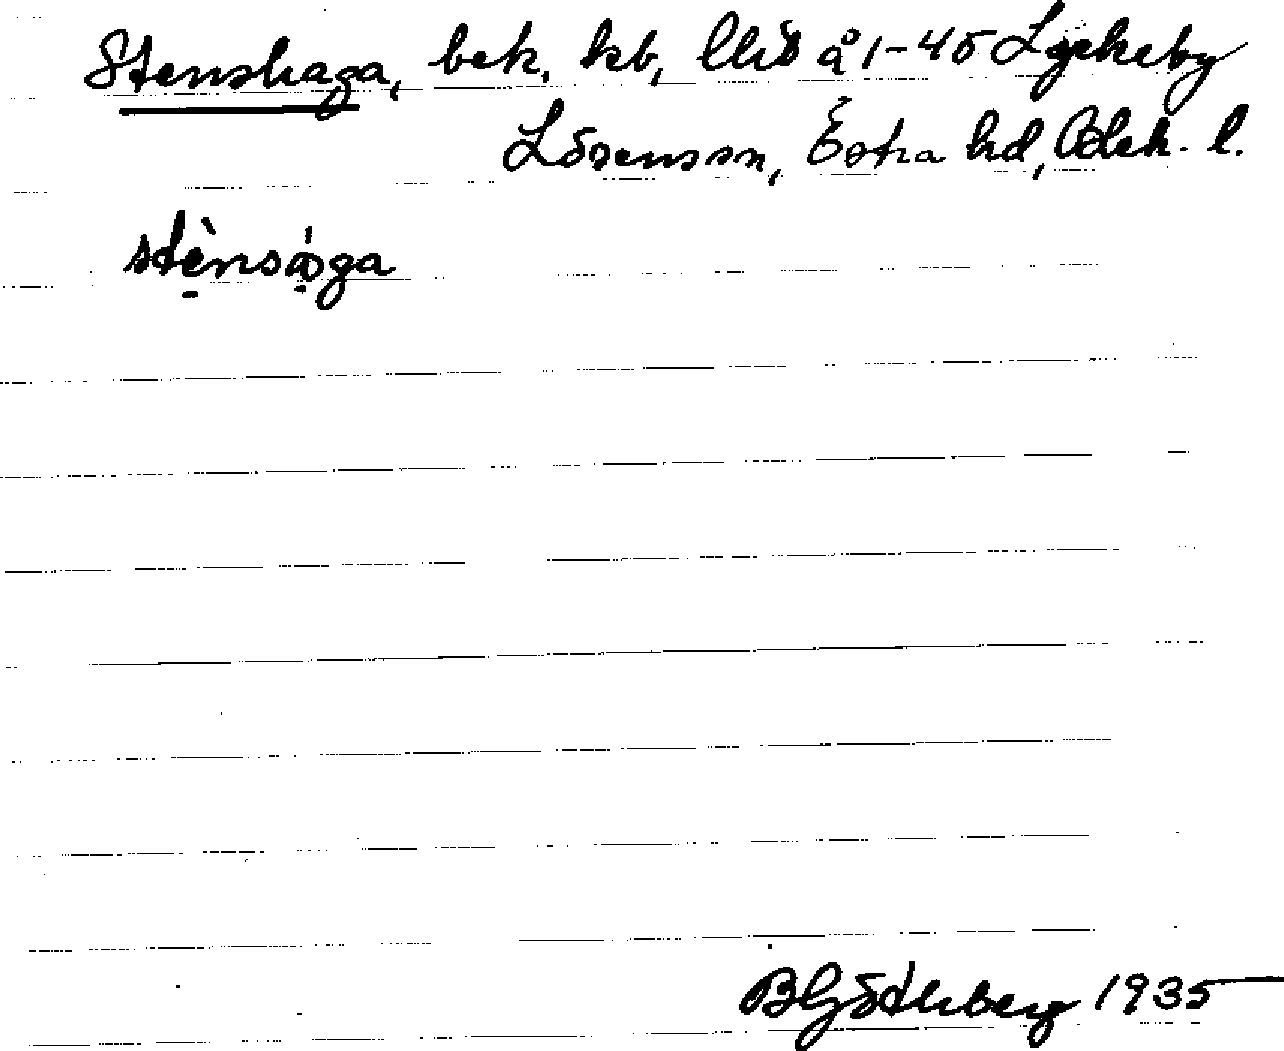 Stenshaga, bek. kb, Uhö å 1-45 Lyckeby
Lösensson, Östra hd, Blek. l.
stènsåga
B Götherberg 1935